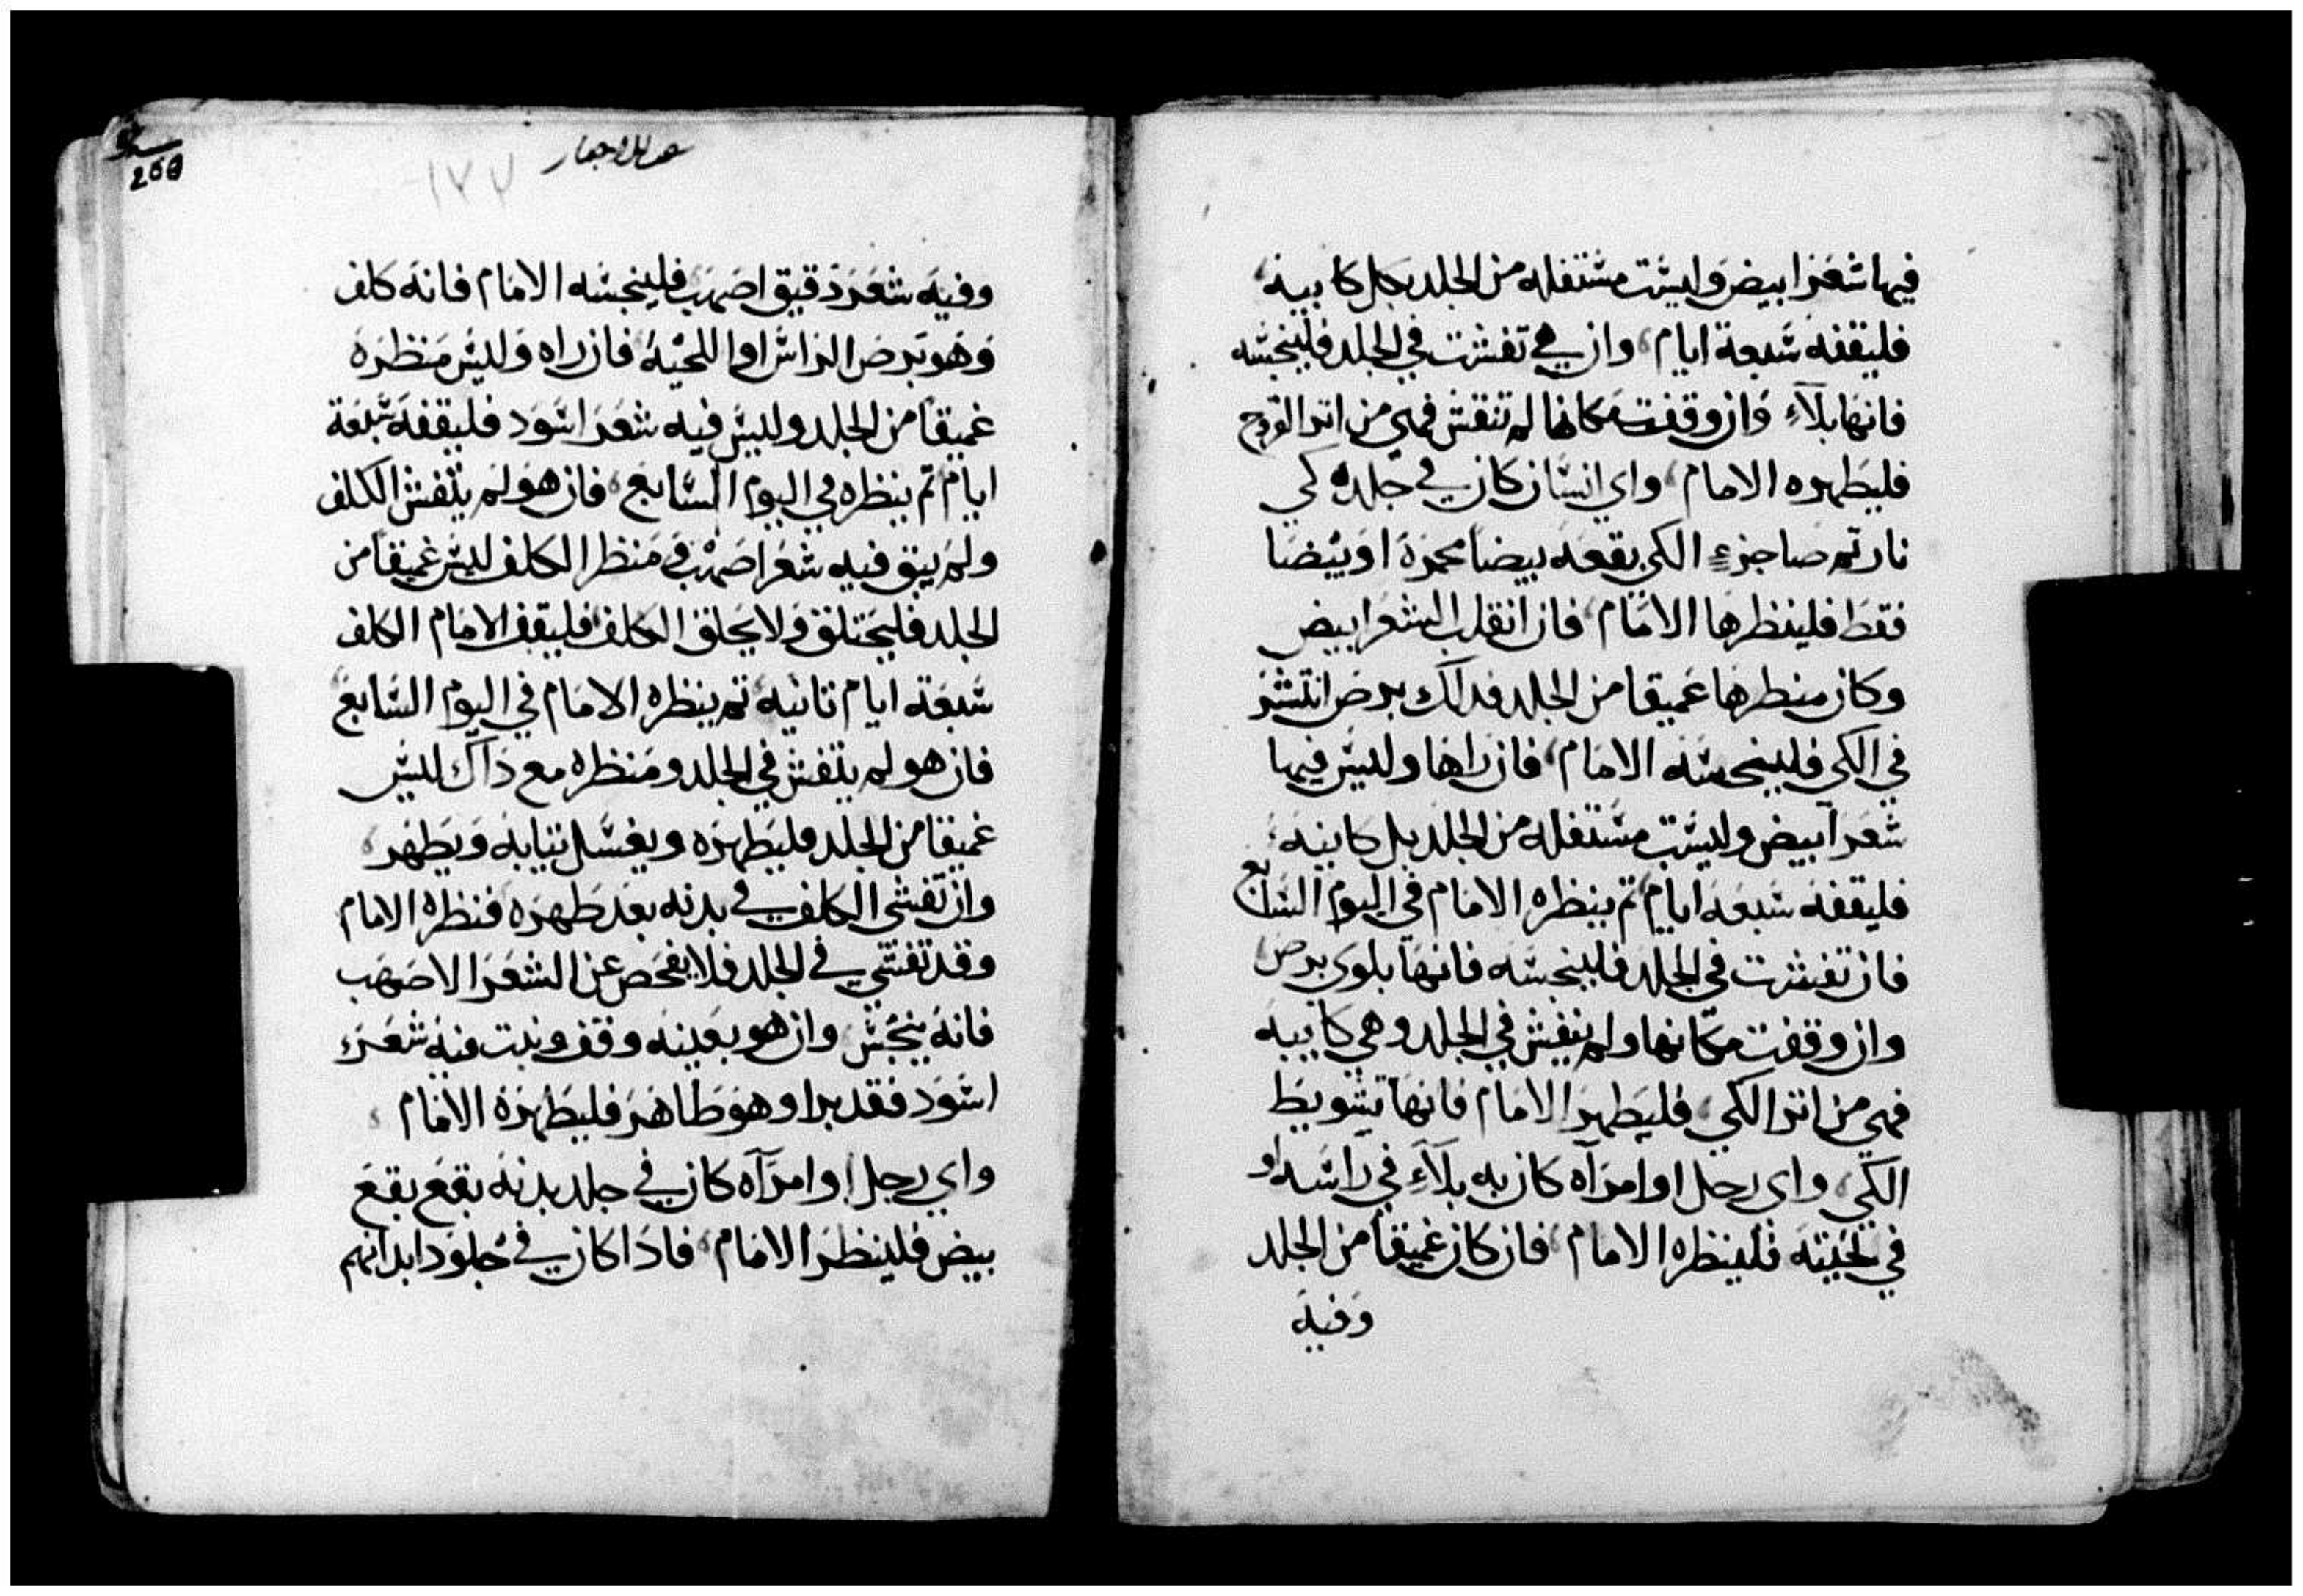 فيها شعرا ابيض وليست مستفله من الجلد بكل كابينه
فليقفه سبعة ايام وان هي تفشت في الجلد فلينجسه
فانها بلاء وان وقفت مكانها لم تتفش فهي من اتر القروح
فليطهره الامام واي انسان كان في جلده كي
نار تم صا جزء الكي بقعه بيضا محمرة او بيضا
فقط فلينظرها الامام فان انقلب الشعر ابيض
وكان منطرها عميقا من الجلد فدلك برص انتشر
في الكي فلينجسه الامام فان راها وليس فيها
شعر ابيض وليست مستفله من الجلد بل كابيه
فليقفه سبعه ايام تم ينظره الامام في اليوم السابع
فان تفشت في الجلد فلينجسه فانها بلوى برص
وان وقفت مكانها ولم تتفش في الجلد وهي كابيه
فهي من اتر الكي فليطهر الامام فانها تشويط
الكي واي رجل او امرآه كان به بلآء في راسه او
في لحيته فلينظره الامام فان كان عميقا من الجلد
وفيه
260
١٧٢
وفيه شعر دقيق اصهب فلينجسه الامام فانه كلف
وهو برص الراس او اللحيه فان راه وليس منظره
عميقا من الجلد وليس فيه شعر اسود فليقفه سبعة
ايام تم ينظره في اليوم السابع فان هو لم يتفش الكلف
ولم يبق فيه شعر اصهب ومنظر الكلف ليس عميقا من
الجلد فليحتلق ولا يحلق الكلف فليقف الامام الكلف
سبعة ايام تانيه تم ينظره الامام في اليوم السابع
فان هو لم يتفش في الجلد ومنظره مع داك ليس
عميقا من الجلد فليطهره ويغسل تيابه ويطهر
وان تفشى الكلف في بدنه بعد طهره فنظره الامام
وقد تفشي في الجلد فلا يفحص عن الشعر الاصهب
فانه ينجس وان هو بعينه وقف ونبت فيه شعر
اسود فقد برا وهو طاهر فليطهره الامام
واي رجل او امرآه كان في جلد بدنه بقع بقع
بيض فلينظر الامام فادا كان في جلود ابدانهم